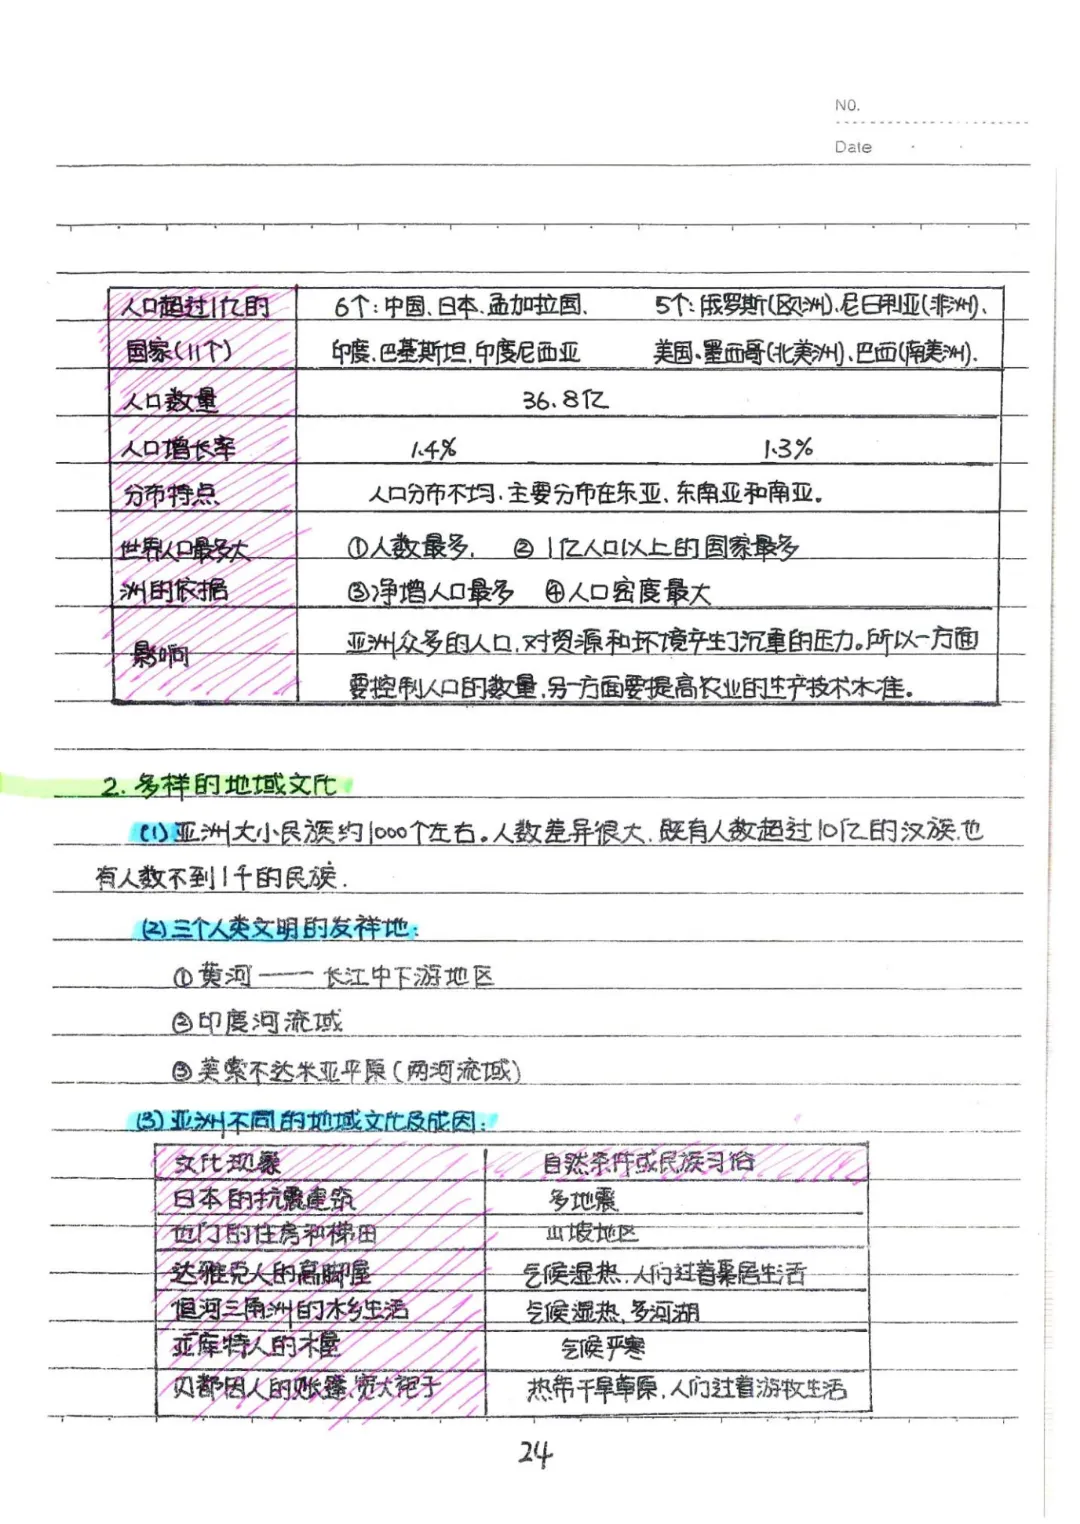 NO.
Date
人口超过1亿的 6个:中国、日本、孟加拉国、 5个:俄罗斯(欧洲)、尼日利亚(非洲)、
国家(11个) 印度、巴基斯坦、印度尼西亚 美国、墨西哥(北美洲)、巴西(南美洲).
人口数量 36.8亿
人口增长率 1.4% 1.3%
分布特点 人口分布不均,主要分布在东亚、东南亚和南亚。
世界人口最多大 ①人数最多. ②1亿人口以上的国家最多
洲的依据 ③净增人口最多 ④人口密度最大
影响 亚洲众多的人口,对资源和环境产生了沉重的压力。所以一方面
要控制人口的数量,另一方面要提高农业的生产技术水准。
2.多样的地域文化
(1)亚洲大小民族约1000个左右。人数差异很大,既有人数超过10亿的汉族,也
有人数不到1千的民族.
(2)三个人类文明的发祥地:
①黄河——长江中下游地区
②印度河流域
③美索不达米亚平原(两河流域)
(3)亚洲不同的地域文化及成因:
文化现象 自然条件或民族习俗
日本的抗震建筑 多地震
也门的住房和梯田 山坡地区
达雅克人的高脚屋 气候湿热,人们过着聚居生活
恒河三角洲的水乡生活 气候湿热,多河湖
亚库特人的木屋 气候严寒
贝都因人的账篷,宽大袍子 热带干旱草原,人们过着游牧生活
24